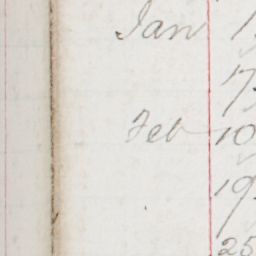 Jan 1
17
Feb 10
19
25